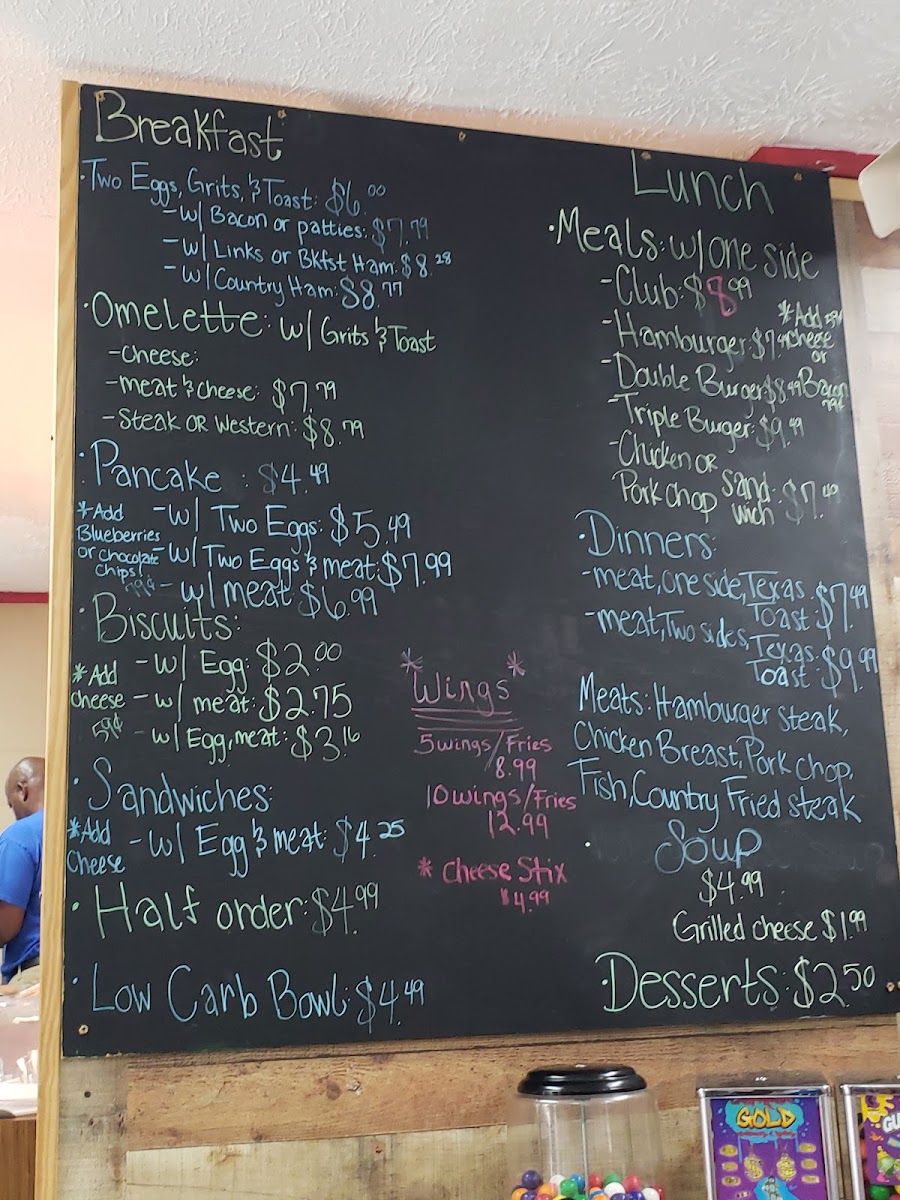 Breakfast
Two Eggs, Grits, & Toast: $6.00
- w/ Bacon or patties: $7.79
- w/ Links or Bkfst Ham: $8.28
- w/ Country Ham: $8.77
Omelette: w/ Grits & Toast
- Cheese:
- meat & cheese: $7.79
- Steak OR Western: $8.79
Pancake: $4.49
*Add
Blueberries
or Chocolate
Chips!
79¢
- w/ Two Eggs: $5.49
- w/ Two Eggs & meat: $7.99
- w/ meat $6.99
Biscuits:
*Add
Cheese
59¢
- w/ Egg: $2.00
- w/ meat: $2.75
- w/ Egg, meat: $3.16
Sandwiches:
*Add
Cheese
- w/ Egg & meat: $4.25
Half order: $4.99
Low Carb Bowl: $4.49
*Wings*
5wings/Fries
8.99
10wings/Fries
12.99
* Cheese Stix
$4.99
Lunch
Meals: w/ one side
- Club: $8.99
- Hamburger: $7.49
- Double Burger $8.49
- Triple Burger: $9.49
*Add 59¢
cheese
or
Bacon
79¢
- Chicken OR
Pork Chop
Sand-
wich
$7.49
Dinners:
- meat, one side, Texas
Toast: $7.49
- meat, Two sides, Texas
Toast: $9.99
Meats: Hamburger steak,
Chicken Breast, Pork chop,
Fish, Country Fried steak
Soup
$4.99
Grilled cheese $1.99
Desserts: $2.50
GOLD